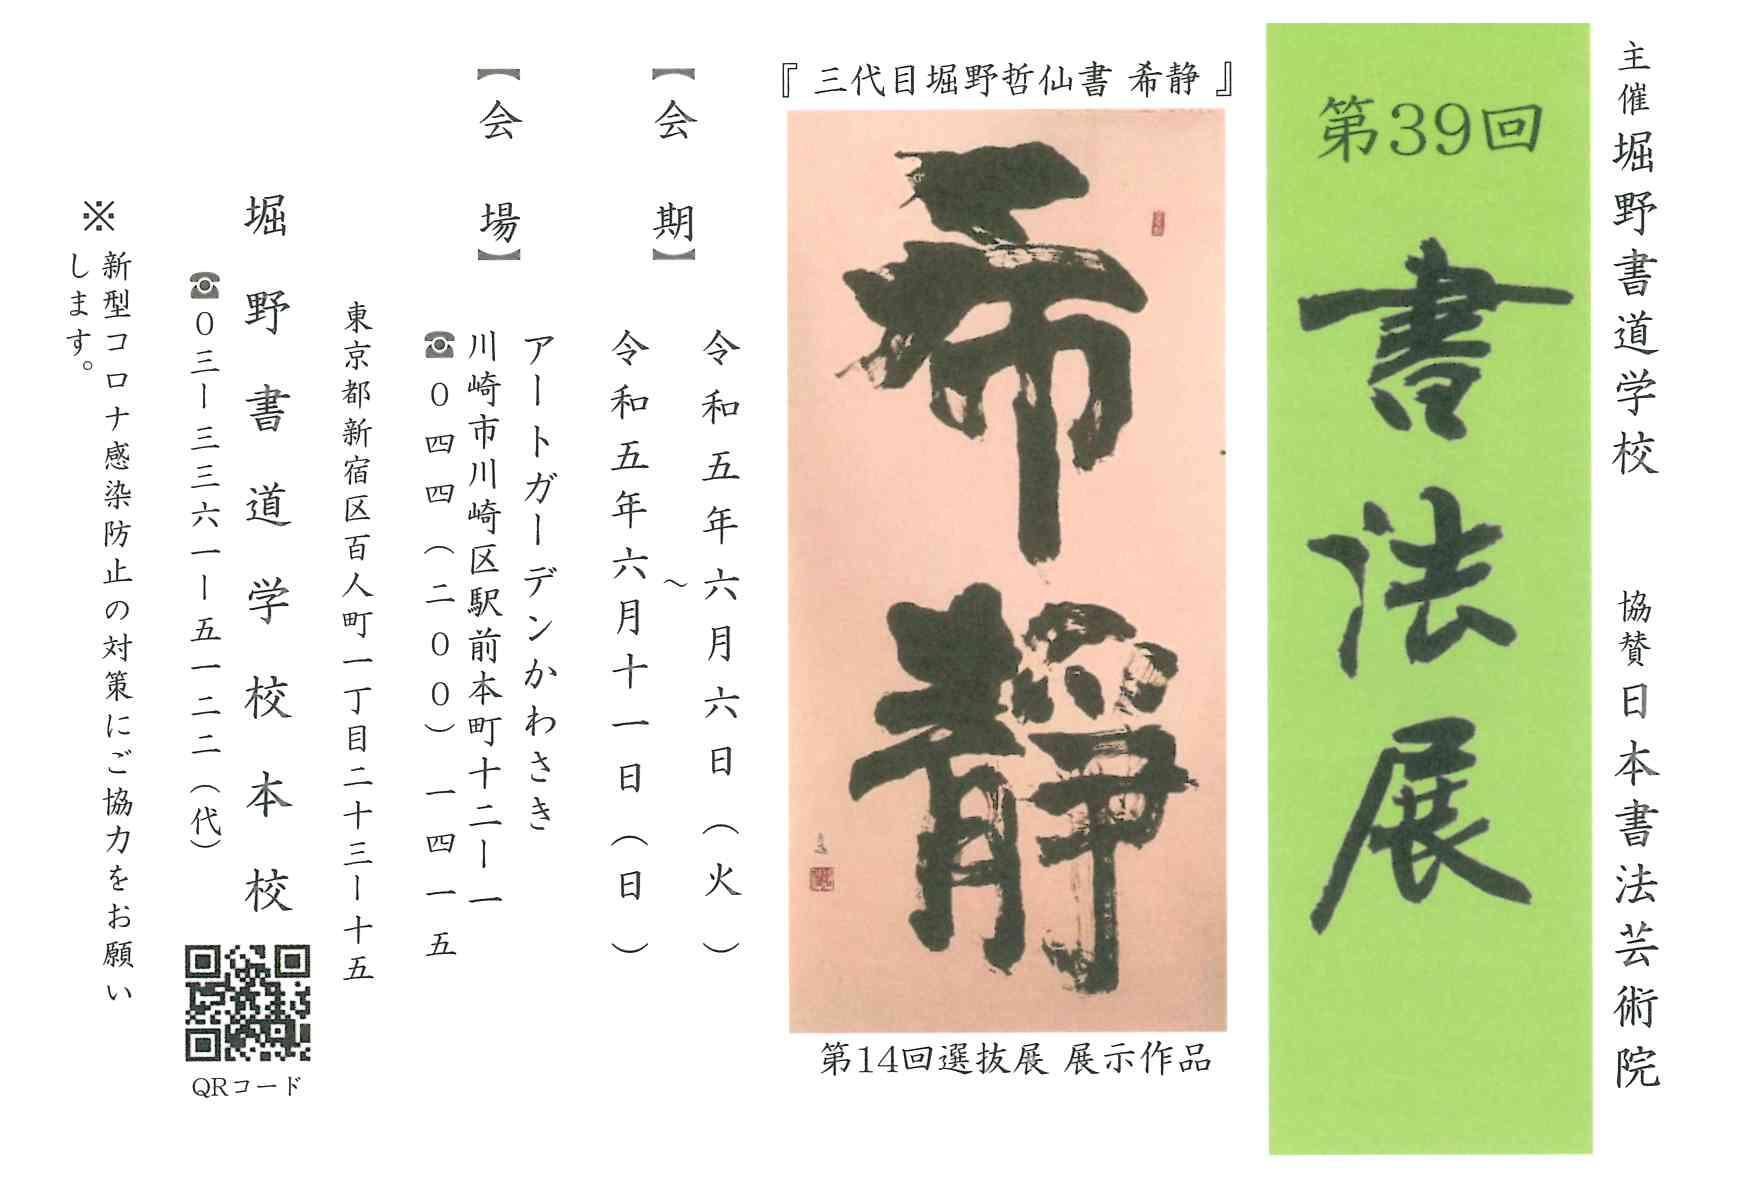 主催 堀野書道学校 協賛 日本書法芸術院
第39回
書法展
『 三代目堀野哲仙書 希静 』
希静
第14回選抜展 展示作品
【会 期】
令和五年六月六日（火）
～
令和五年六月十一日（日）
【会 場】
アートガーデンかわさき
川崎市川崎区駅前本町十二ー一
☎０四四（二００）一四一五
東京都新宿区百人町一丁目二十三ー十五
堀野書道学校本校
☎０三ー三三六一ー五一二二（代）
QRコード
※新型コロナ感染防止の対策にご協力をお願い
します。